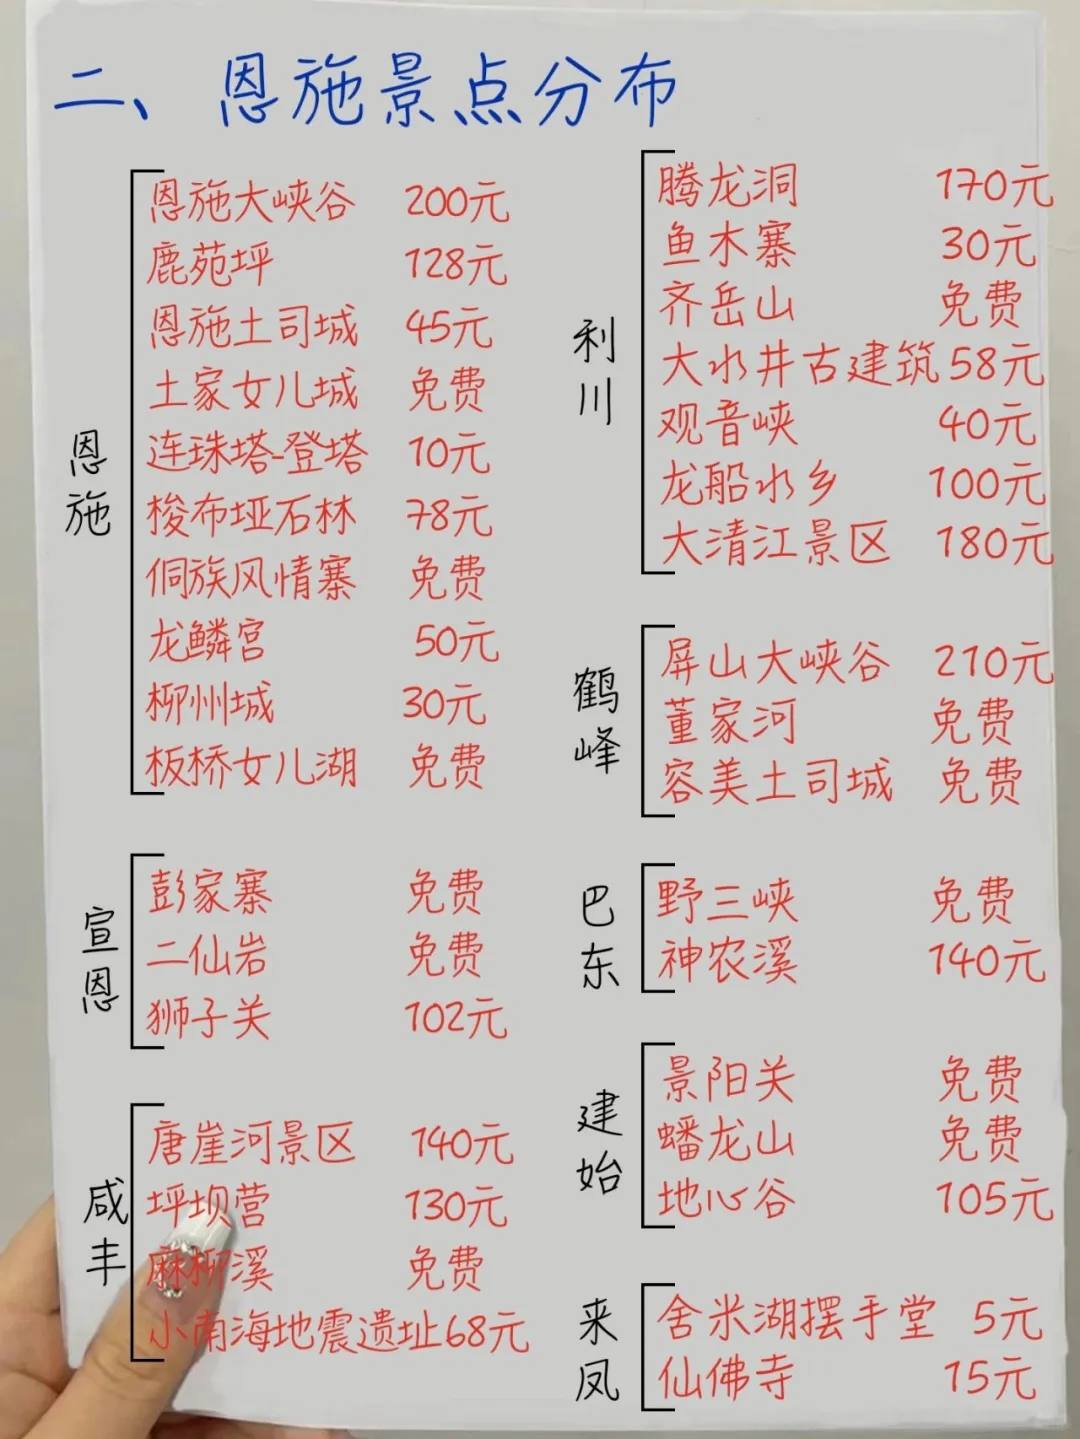 二、恩施景点分布
恩施
恩施大峡谷 200元
鹿苑坪 128元
恩施土司城 45元
土家女儿城 免费
连珠塔-登塔 10元
梭布垭石林 78元
侗族风情寨 免费
龙鳞宫 50元
柳州城 30元
板桥女儿湖 免费
宣恩
彭家寨 免费
二仙岩 免费
狮子关 102元
咸丰
唐崖河景区 140元
坪坝营 130元
麻柳溪 免费
小南海地震遗址68元
利川
腾龙洞 170元
鱼木寨 30元
齐岳山 免费
大水井古建筑58元
观音峡 40元
龙船水乡 100元
大清江景区 180元
鹤峰
屏山大峡谷 210元
董家河 免费
容美土司城 免费
巴东
野三峡 免费
神农溪 140元
建始
景阳关 免费
蟠龙山 免费
地心谷 105元
来凤
舍米湖摆手堂 5元
仙佛寺 15元